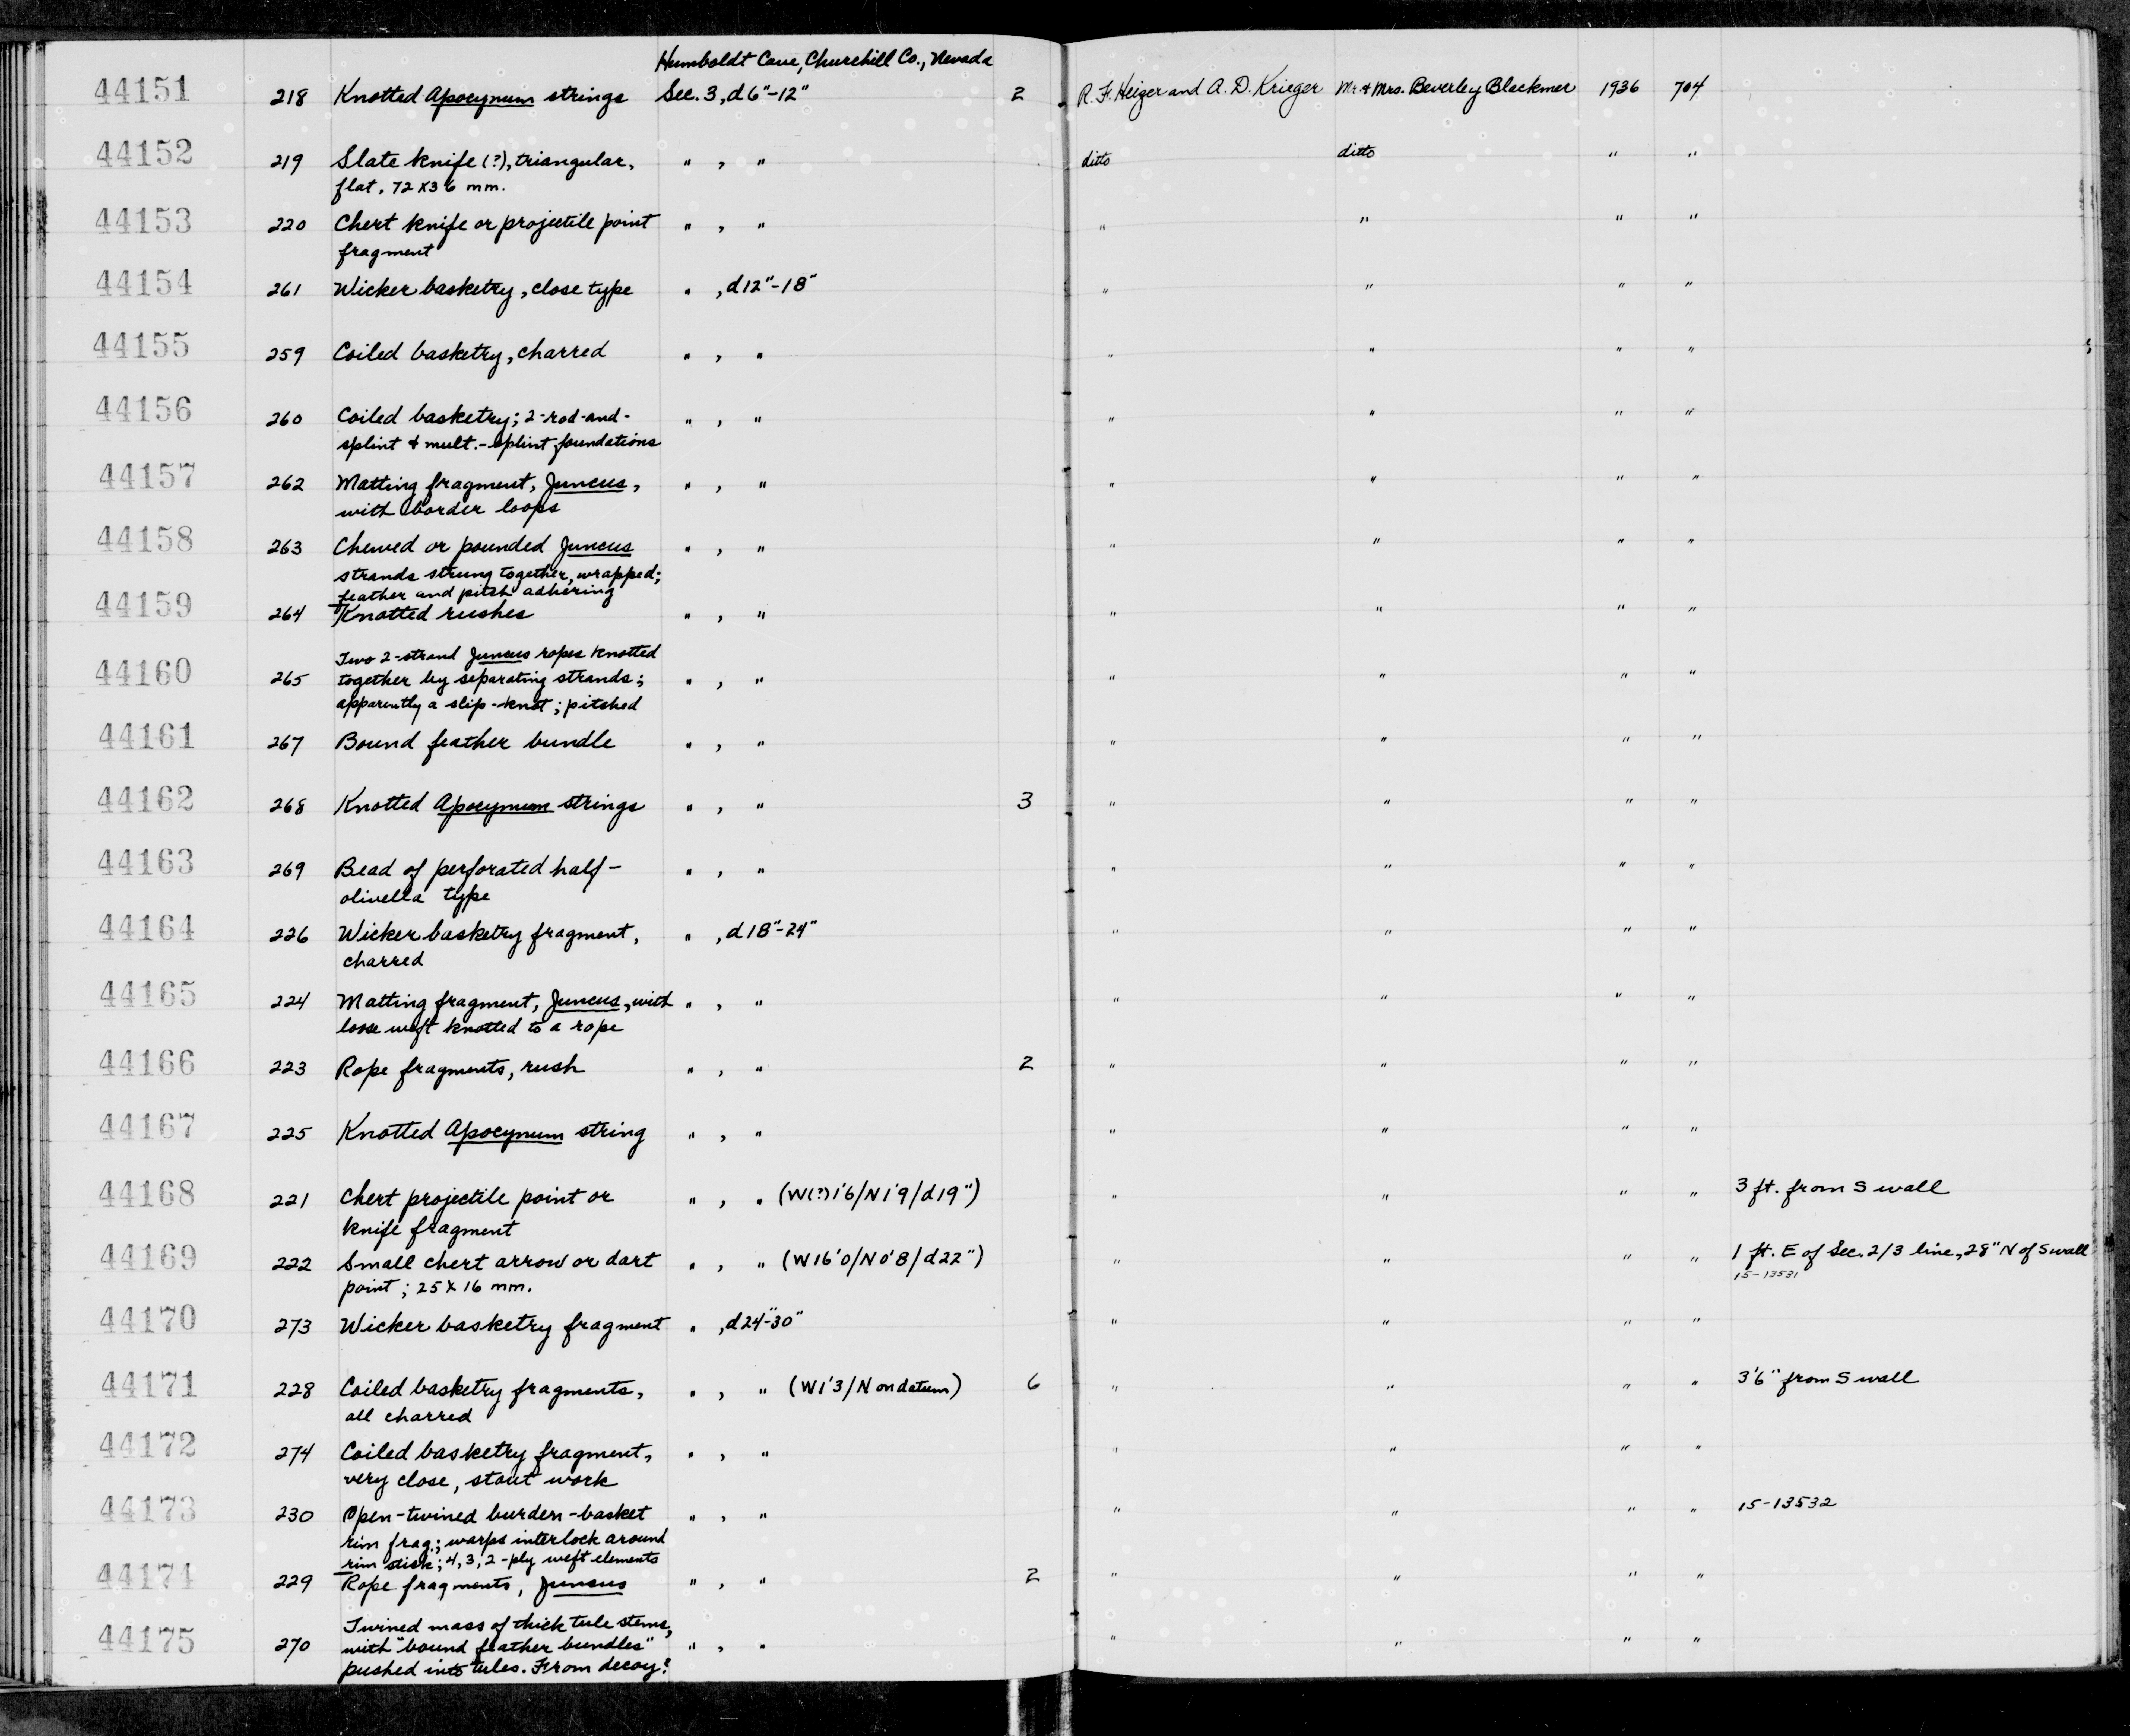 Humboldt Cave, Churchill Co., Nevada
44151 218 Knotted Apocynum strings Sec. 3, d 6"-12" 2 R. F. Heizer and A. D. Krieger Mr. & Mrs. Beverley Blackmer 1936 704
44152 219 Slate knife (?), triangular, " , " ditto ditto " "
flat, 72 x 36 mm.
44153 220 Chert knife or projectile point " , " " " " "
fragment
44154 261 Wicker basketry, close type " , d 12"-18" " " " "
44155 259 Coiled basketry, charred " , " " " " "
44156 260 Coiled basketry; 2-rod-and- " , " " " " "
splint & mult.-splint foundations
44157 262 Matting fragment, Juncus, " , " " " " "
with border loops
44158 263 Chewed or pounded Juncus " , " " " " "
strands strung together, wrapped;
feather and pitch adhering
44159 264 Knotted rushes " , " " " " "
Two 2-strand Juncus ropes knotted
44160 265 together by separating strands; " , " " " " "
apparently a slip-knot; pitched
44161 267 Bound feather bundle " , " " " " "
44162 268 Knotted Apocynum strings " , " 3 " " " "
44163 269 Bead of perforated half- " , " " " " "
olivella type
44164 226 Wicker basketry fragment, " , d 18"-24" " " " "
charred
44165 224 Matting fragment, Juncus, with " , " " " " "
loose weft knotted to a rope
44166 223 Rope fragments, rush " , " 2 " " " "
44167 225 Knotted Apocynum string " , " " " " "
44168 221 Chert projectile point or " , " (W(?)1'6/N1'9/d19") " " " " 3 ft. from S wall
knife fragment
44169 222 Small chert arrow or dart " , " (W16'0/N0'8/d22") " " " " 1 ft. E of Sec. 2/3 line, 28" N of S wall
point; 25 x 16 mm. 15-13531
44170 273 Wicker basketry fragment " , d 24"-30" " " " "
44171 228 Coiled basketry fragments, " , " (W1'3/N on datum) 6 " " " " 3'6" from S wall
all charred
44172 274 Coiled basketry fragment, " , " " " " "
very close, stout work
44173 230 Open-twined burden-basket " , " " " " " 15-13532
rim frag.; warps interlock around
rim stick; 4, 3, 2-ply weft elements
44174 229 Rope fragments, Juncus " , " 2 " " " "
Twined mass of thick tule stems,
44175 270 with "bound feather bundles" " , " " " " "
pushed into tules. From decoy?